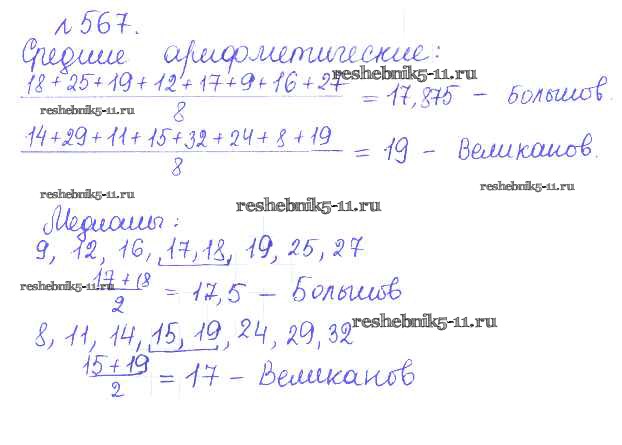 №567.
Средние арифметические:
18+25+19+12+17+9+16+27
reshebnik5-11.ru
8
= 17,875 - Большов.
reshebnik5-11.ru
14+29+11+15+32+24+8+19
8
= 19 - Великанов.
reshebnik5-11.ru
reshebnik5-11.ru
reshebnik5-11.ru
Медианы:
9, 12, 16, 17, 18, 19, 25, 27
17+18
2
= 17,5 - Большов
reshebnik5-11.ru
8, 11, 14, 15, 19, 24, 29, 32
reshebnik5-11.ru
15+19
2
= 17 - Великанов